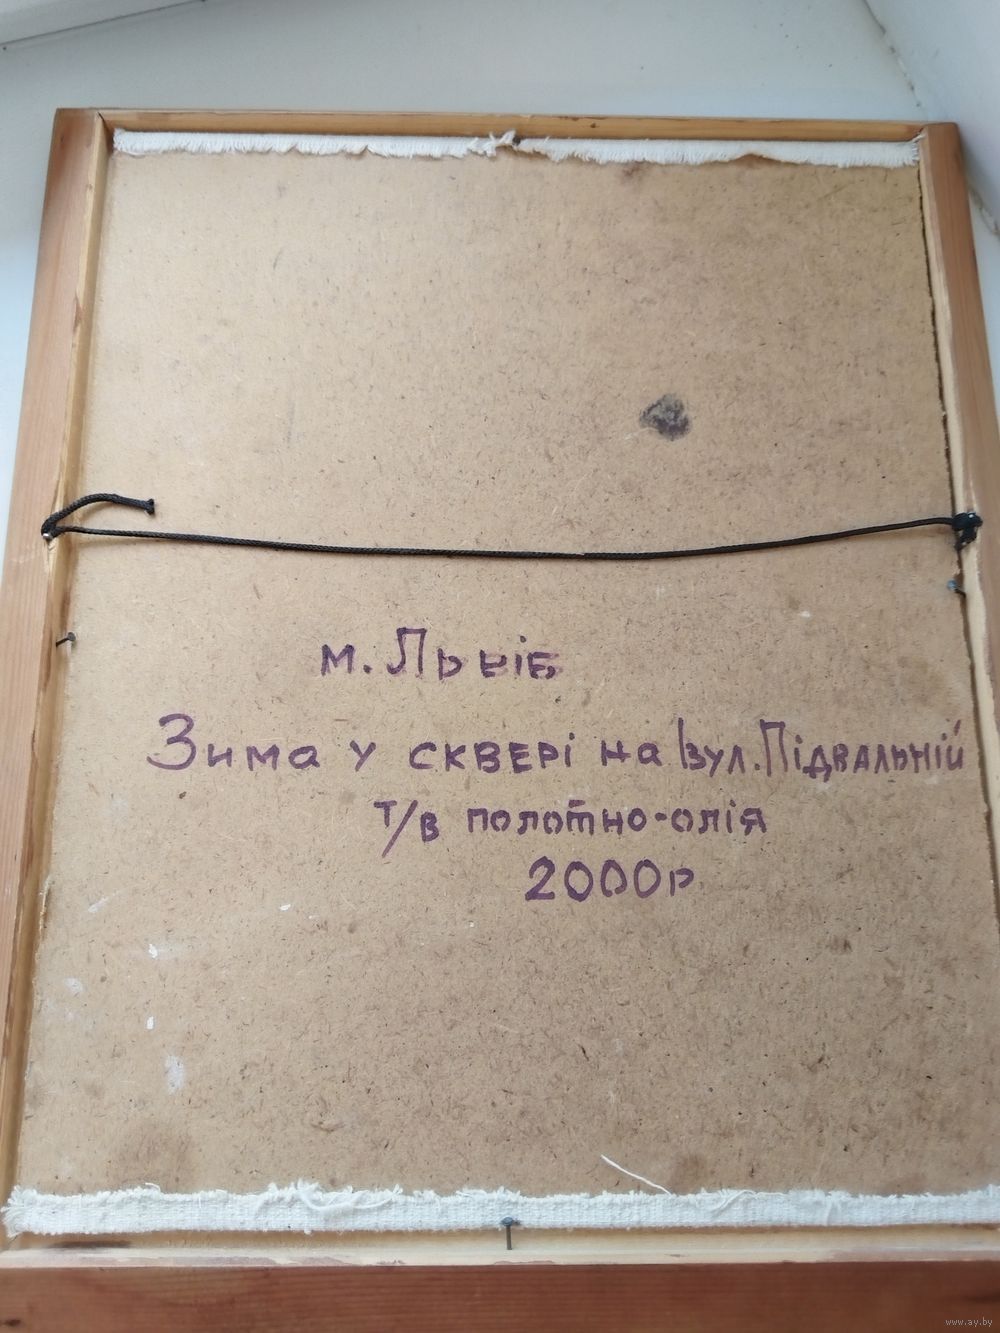 м. Львів
Зима у сквері на вул. Підвальній
т/в полотно-олія
2000р
www.ay.by